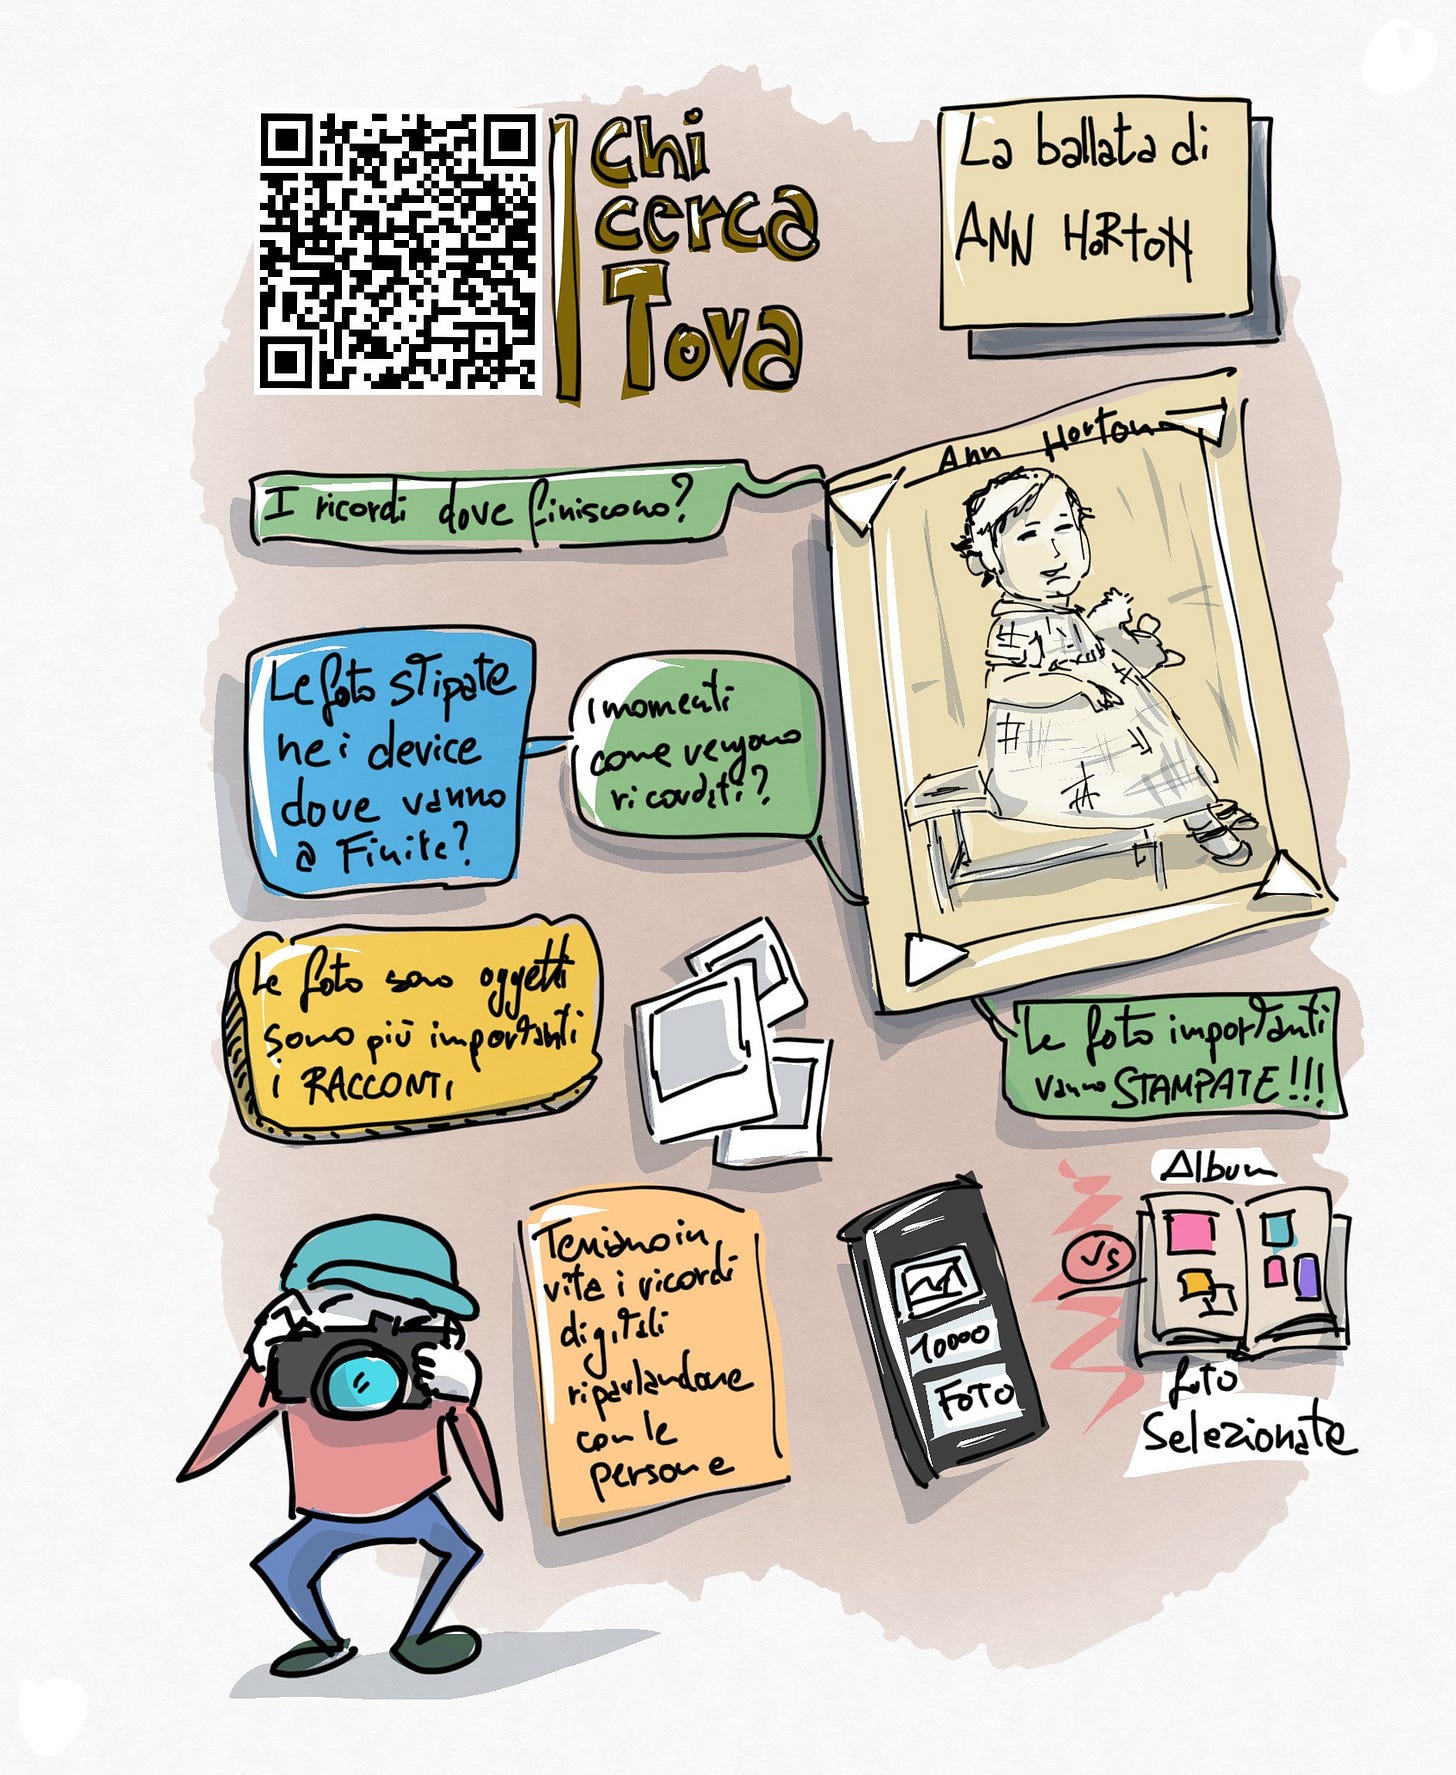 Chi
cerca
Tova
La ballata di
ANN HORTON
Ann Horton
I ricordi dove finiscono?
Le foto stipate
nei device
dove vanno
a Finire?
I momenti
come vengono
ricordati?
Le foto sono oggetti
sono più importanti
i RACCONTI
Le foto importanti
vanno STAMPATE!!!
Teniamo in
vita i ricordi
digitali
riparlandone
con le
persone
10000
FOTO
VS
Album
foto
Selezionate